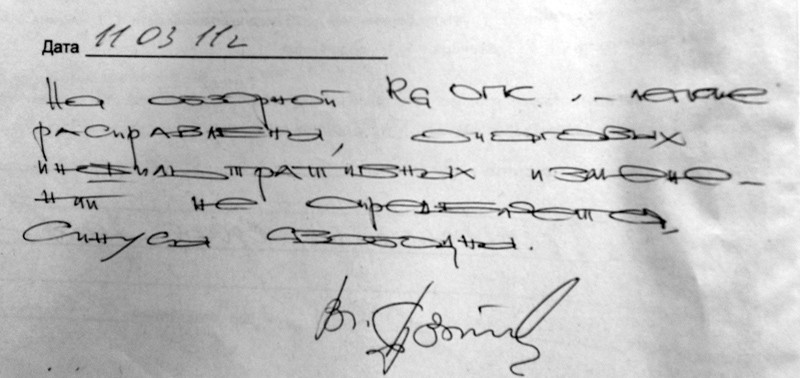 Дата 11 03 11г
На обзорной RG ОГК - легкие
расправлены, очаговых
инфильтративных измене-
ний не определяется,
Синусы свободны.